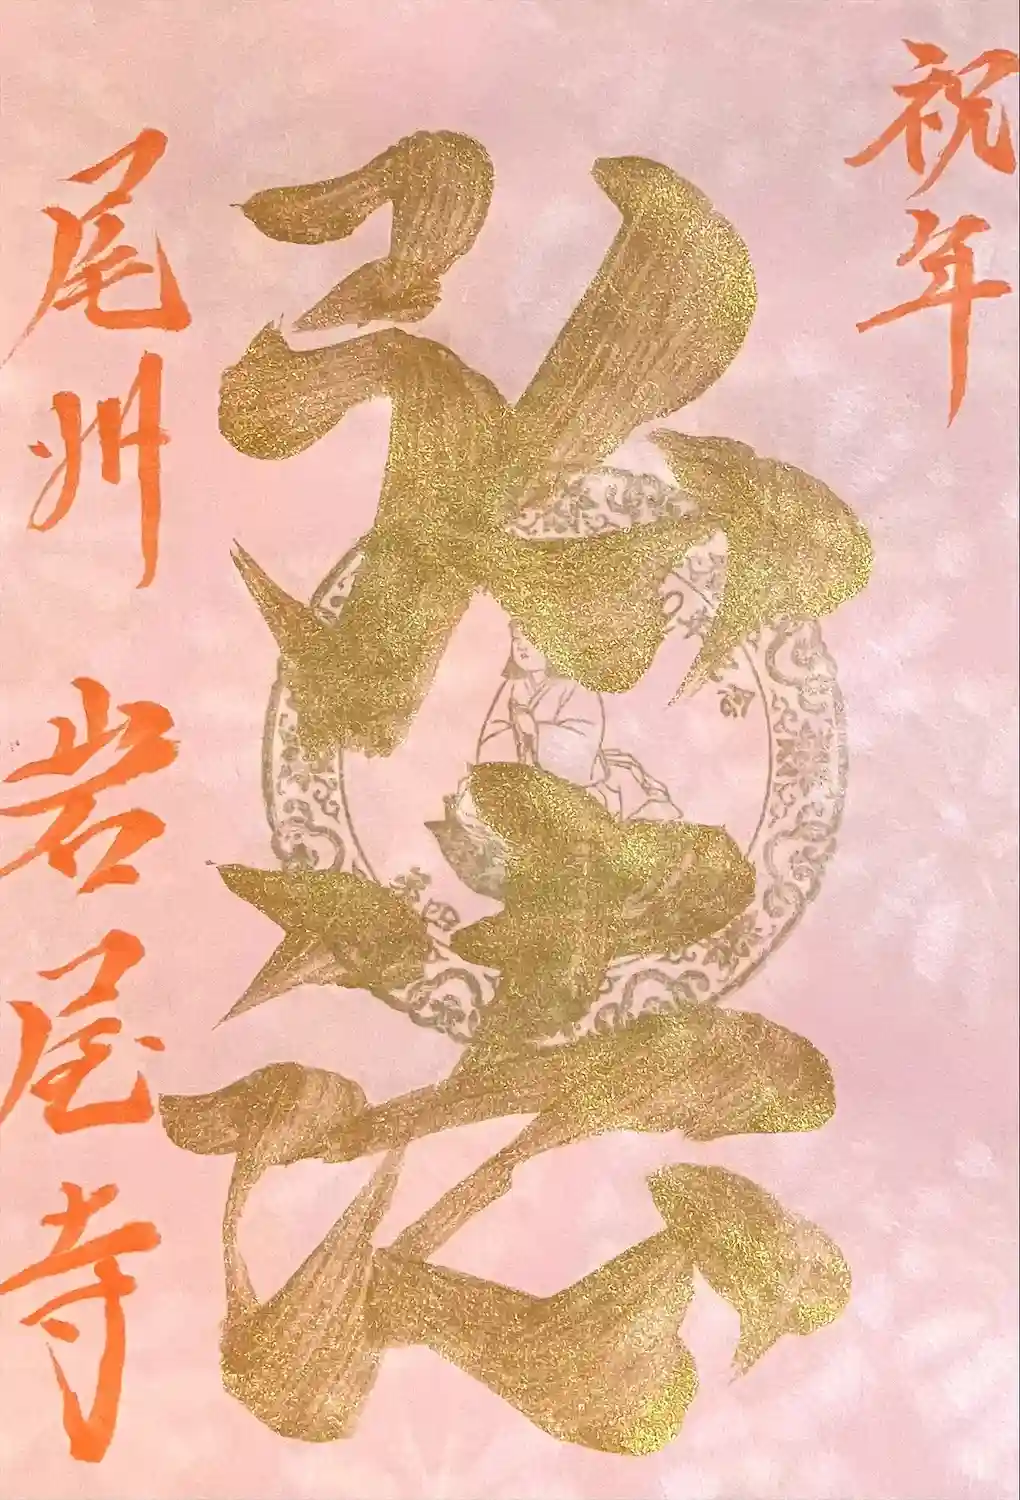 祝年
弘法
尾州 岩屋寺
第四